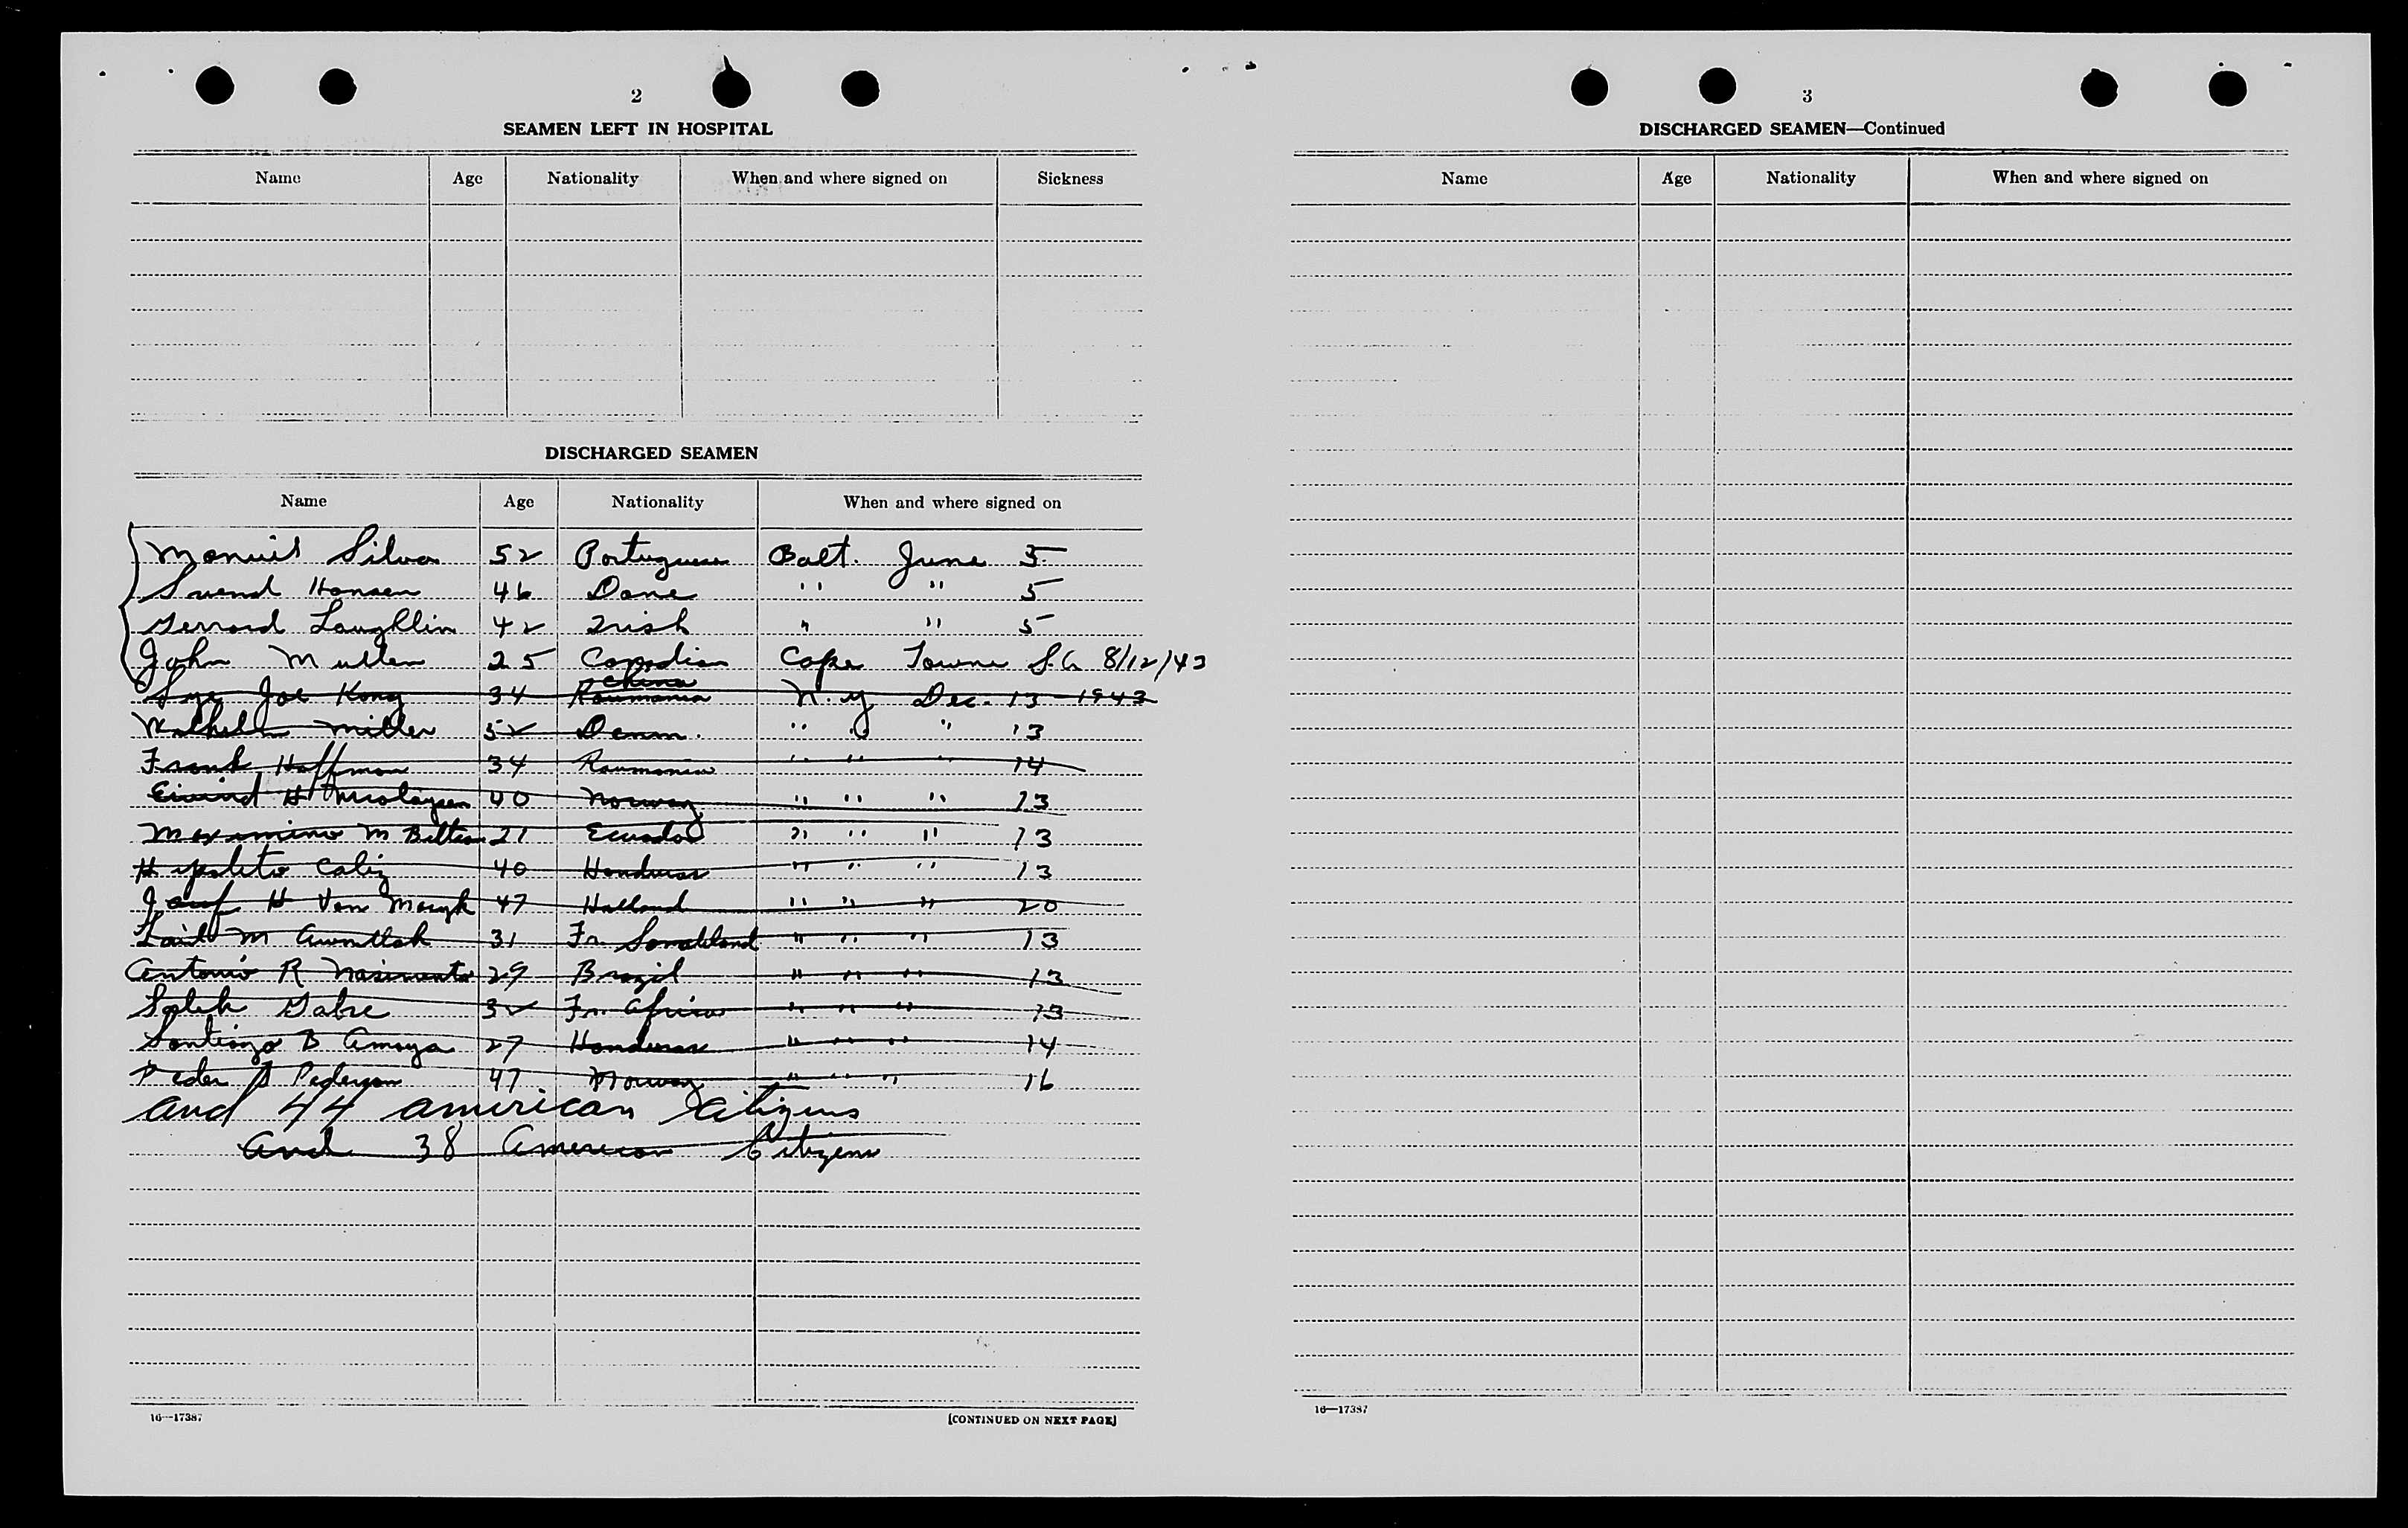 2
SEAMEN LEFT IN HOSPITAL
Name Age Nationality When and where signed on Sickness
DISCHARGED SEAMEN
Name Age Nationality When and where signed on
Manuel Silva 52 Portuguese Balt. June 5
Svend Hansen 46 Dane " " 5
Gerrard Laughlin 42 Irish " " 5
John Mullen 25 Canadian Cape Towne S.A 8/12/43
Sye Joe Kong 34 Roumania China N.Y Dec. 13 1943
Miller 52 Denm. " " " 13
Frank Hoffman 34 Roumania " " " 14
Eivind H Nicolaysen 40 Norway " " " 13
Maximino M 21 Ecuador " " " 13
Hipolito Caliz 40 Honduras " " " 13
H Van 47 Holland " " " 20
M 31 Fr. Somaliland " " " 13
Antonio R Nasimento 29 Brazil " " " 13
Saleh Gabre 32 Fr. Africa " " " 13
Santiago B Amaya 27 Honduras " " " 14
Peder A Pedersen 47 Norway " " " 16
and 44 american citizens
and 38 American Citizens
16—17387
[CONTINUED ON NEXT PAGE]
3
DISCHARGED SEAMEN—Continued
Name Age Nationality When and where signed on
16—17387